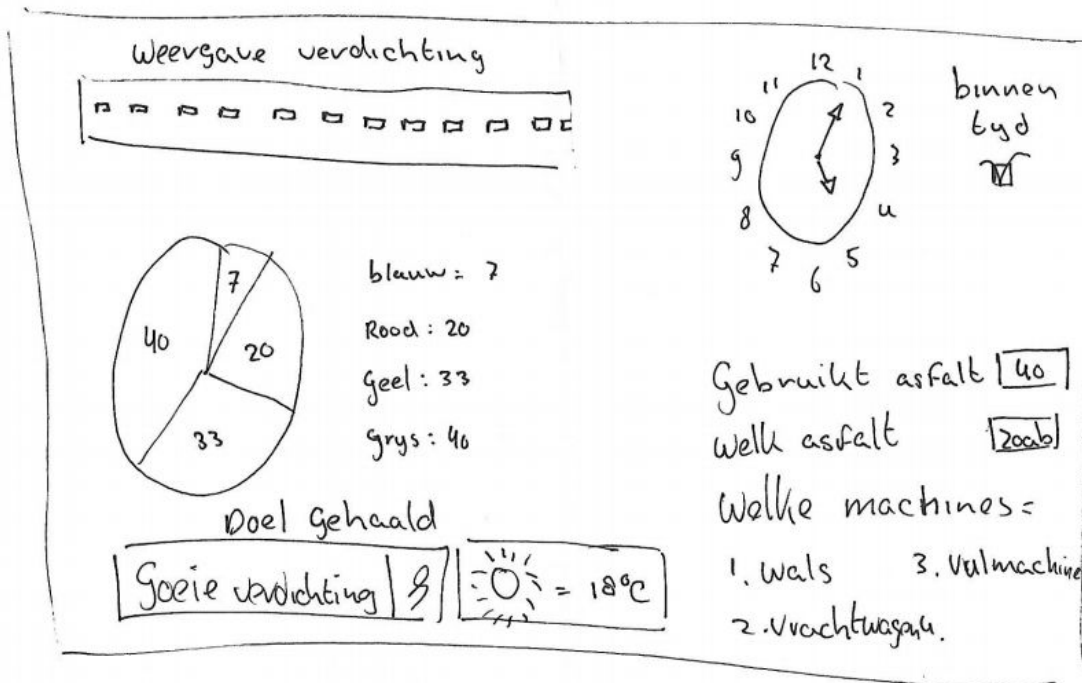 weergave verdichting
12
1
2
3
4
5
6
7
8
9
10
11
binnen
tyd
7
20
33
40
blauw = 7
Rood : 20
geel : 33
grys : 40
Gebruikt asfalt 40
welk asfalt zoab
Welke machines =
1. wals 3. Vulmachine
2. Vrachtwagen
Doel gehaald
Goeie verdichting
= 18°C